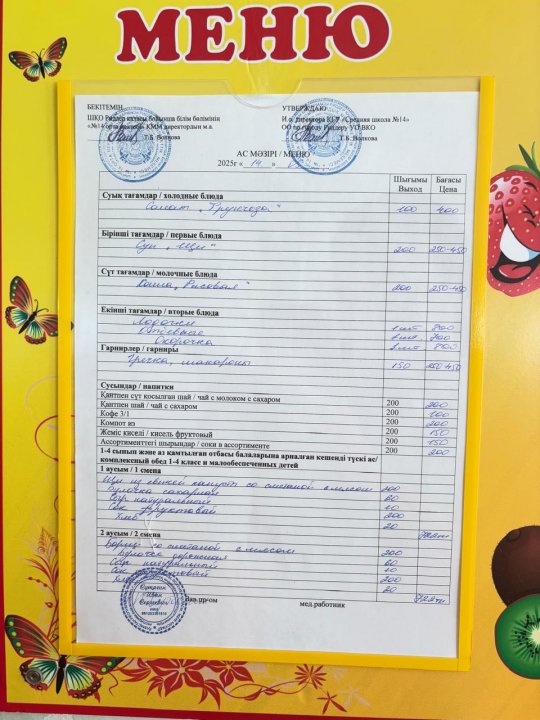 МЕНЮ
БЕКІТЕМІН
УТВЕРЖДАЮ
ШҚО Риддер қаласы бойынша білім бөлімінің
И.о. директора КГУ «Средняя школа №14»
«№14 орта мектебі» КММ директордың м.а.
ОО по городу Риддеру УО ВКО
Т.Б. Волкова
Т.Б. Волкова
АС МӘЗІРІ / МЕНЮ
2025г « 14 »
Шығымы Бағасы
Выход Цена
Суық тағамдар / холодные блюда
Салат „Фунчоза“ 100 400
Бірінші тағамдар / первые блюда
Суп „Щи“ 200 250-450
Сүт тағамдар / молочные блюда
Каша „Рисовая“ 200 250-450
Екінші тағамдар / вторые блюда
Окорочка
Гарнирлер / гарниры
Гречка, макароны 150
Сусындар / напитки
Қантпен сүт қосылған шай / чай с молоком с сахаром 200 200
Қантпен шай / чай с сахаром 200 100
Кофе 3/1 200 200
Компот из 200 150
Жеміс киселі / кисель фруктовый 200 150
Ассортименттегі шырындар / соки в ассортименте 200 200
1-4 сынып және аз қамтылған отбасы балаларына арналған кешенді түскі ас/
комплексный обед 1-4 класс и малообеспеченных детей
1 ауысым / 1 смена
Щи из свежей капусты со сметаной с мясом 200
Булочка сахарная 60
Сыр натуральный 10
Сок фруктовый 200
Хлеб 20
2 ауысым / 2 смена
Борщ со сметаной с мясом 200
Булочка 60
Сыр натуральный 10
Сок фруктовый 200
Хлеб 20
Зав.пр-ом
мед.работник